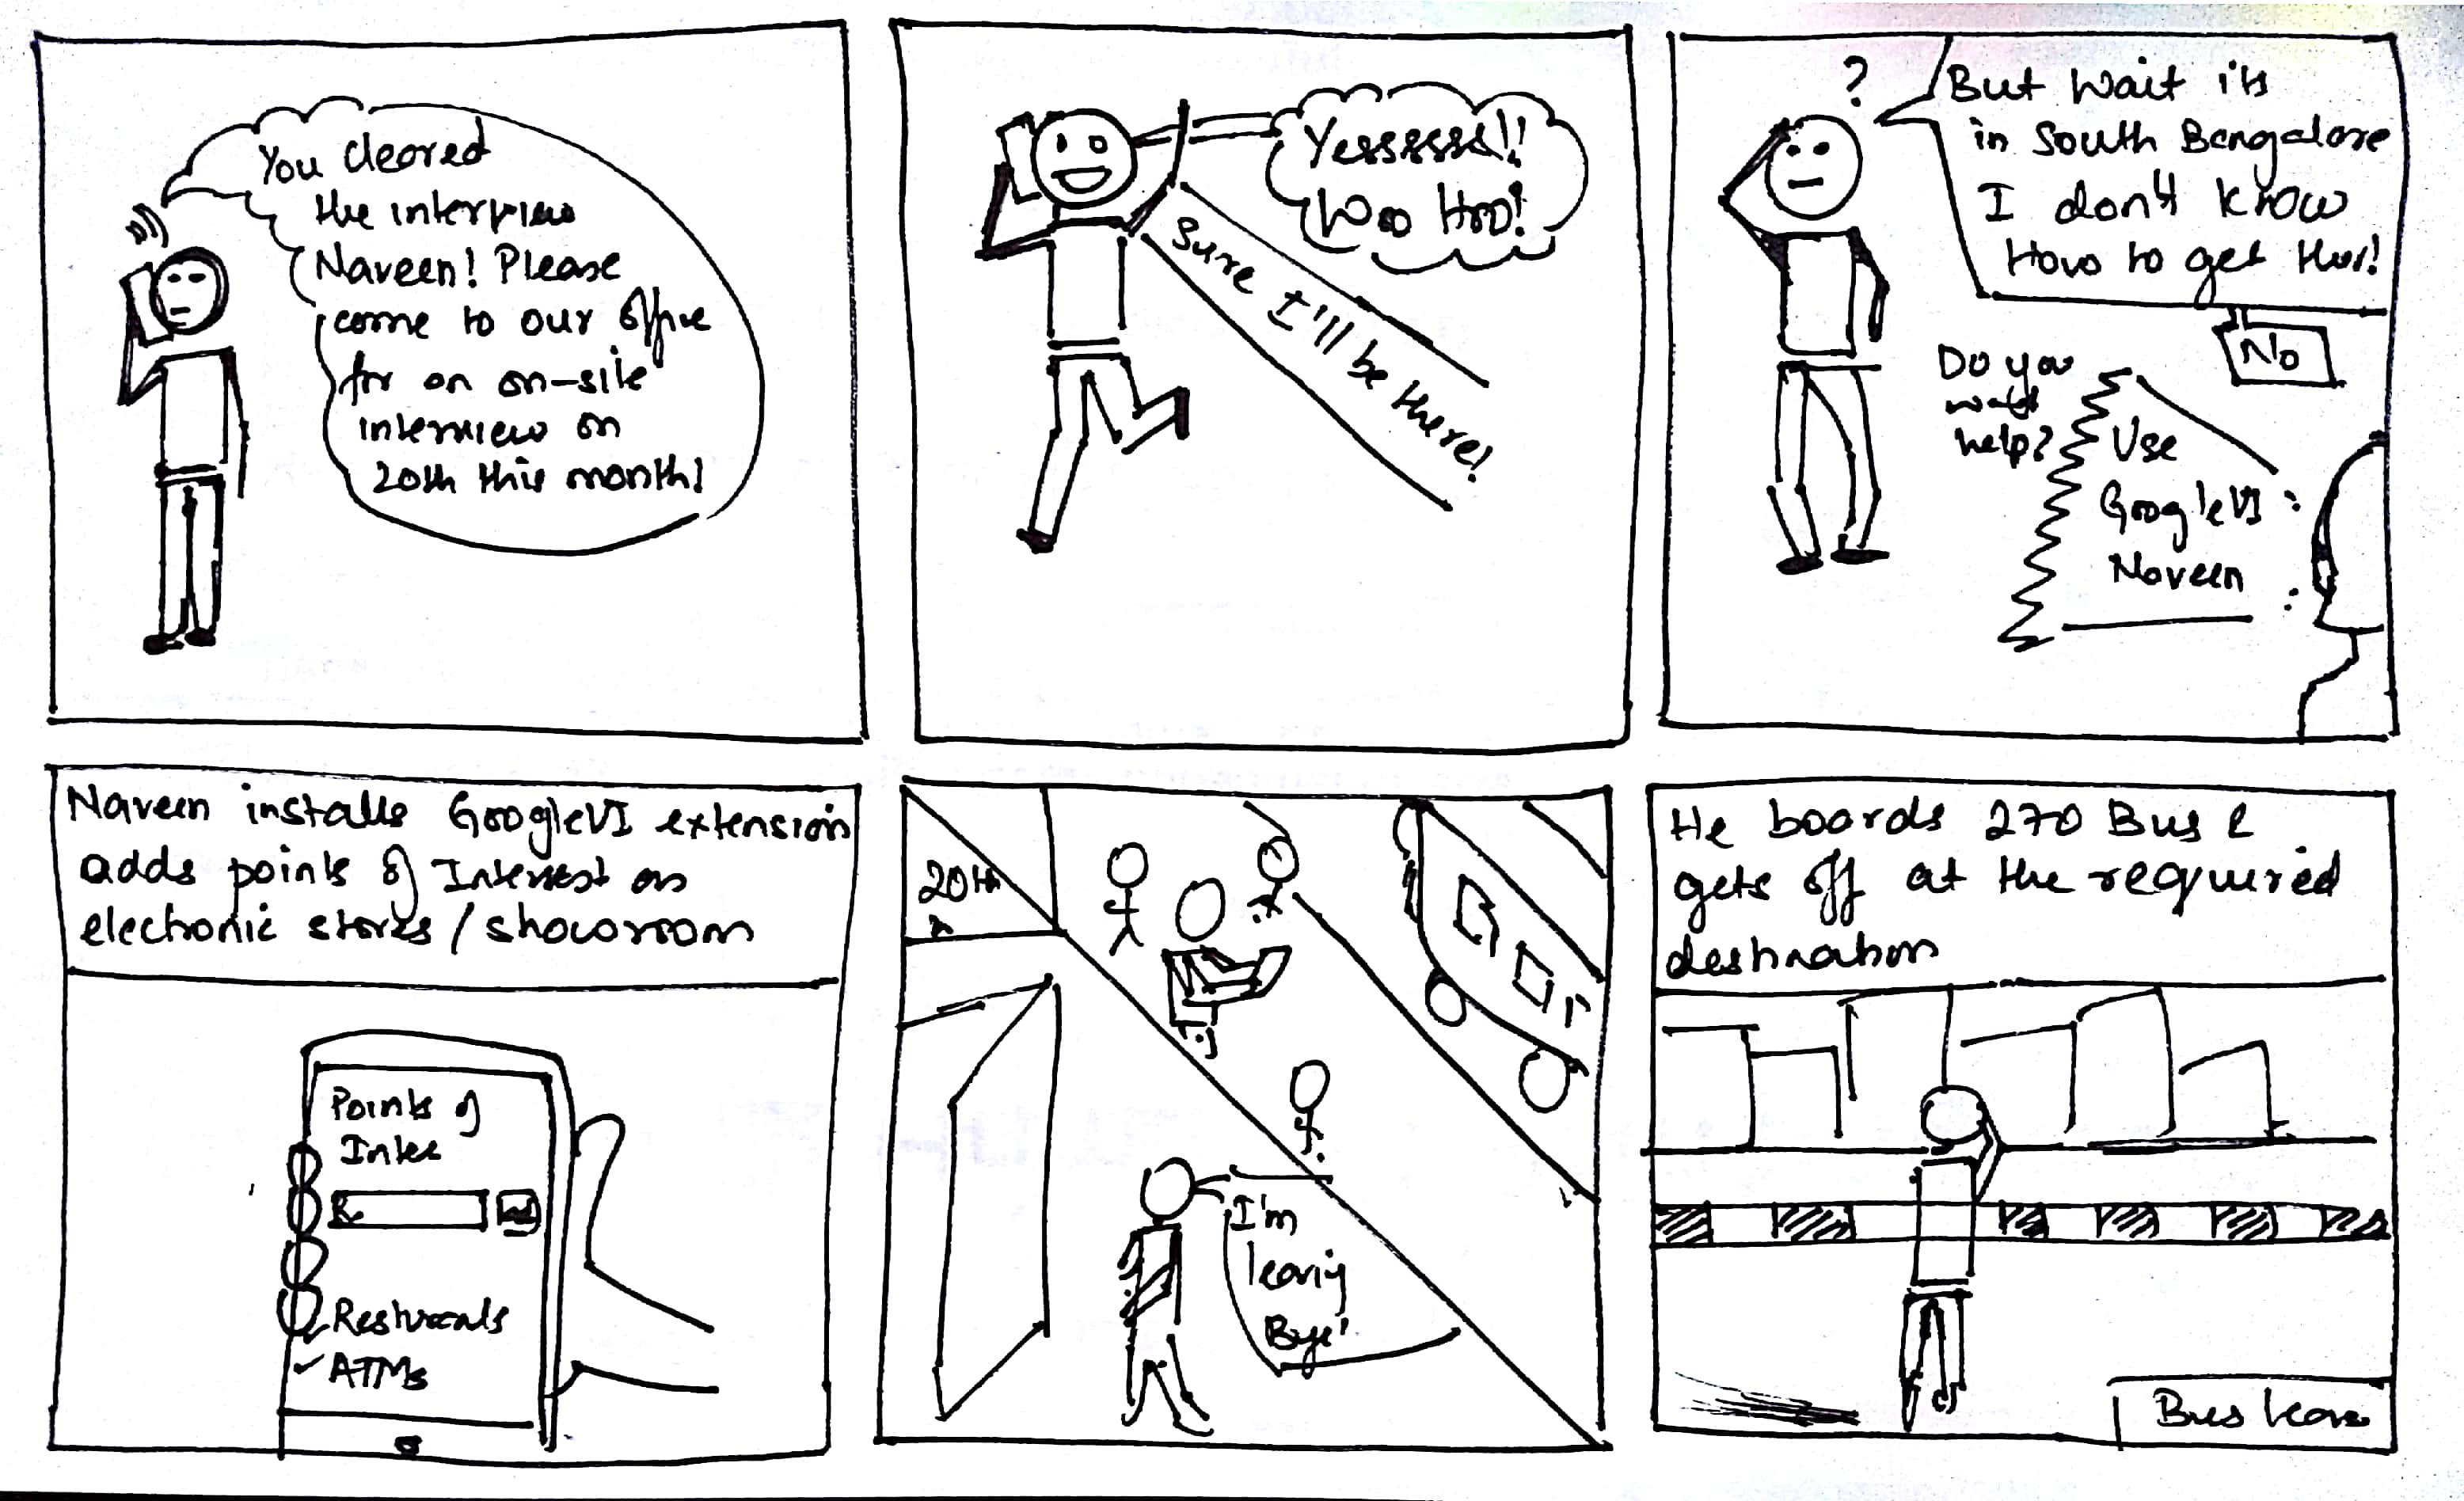 You cleared
the interview
Naveen! Please
come to our office
for an on-site
interview on
20th this month!
Yesssssss!!
Woo Hoo!
Sure I'll be there!
?
But wait its
in South Bangalore
I don't know
How to get ther!
No
Do you
want
help?
Use
GoogleVI
Naveen
Naveen installs GoogleVI extension
adds points of Interest as
electronic stores/showroom
Points of
Inter
Resturants
✓ ATMs
20th
I'm
leaving
Bye!
He boards 270 Bus &
gets off at the required
destination
Bus leaves